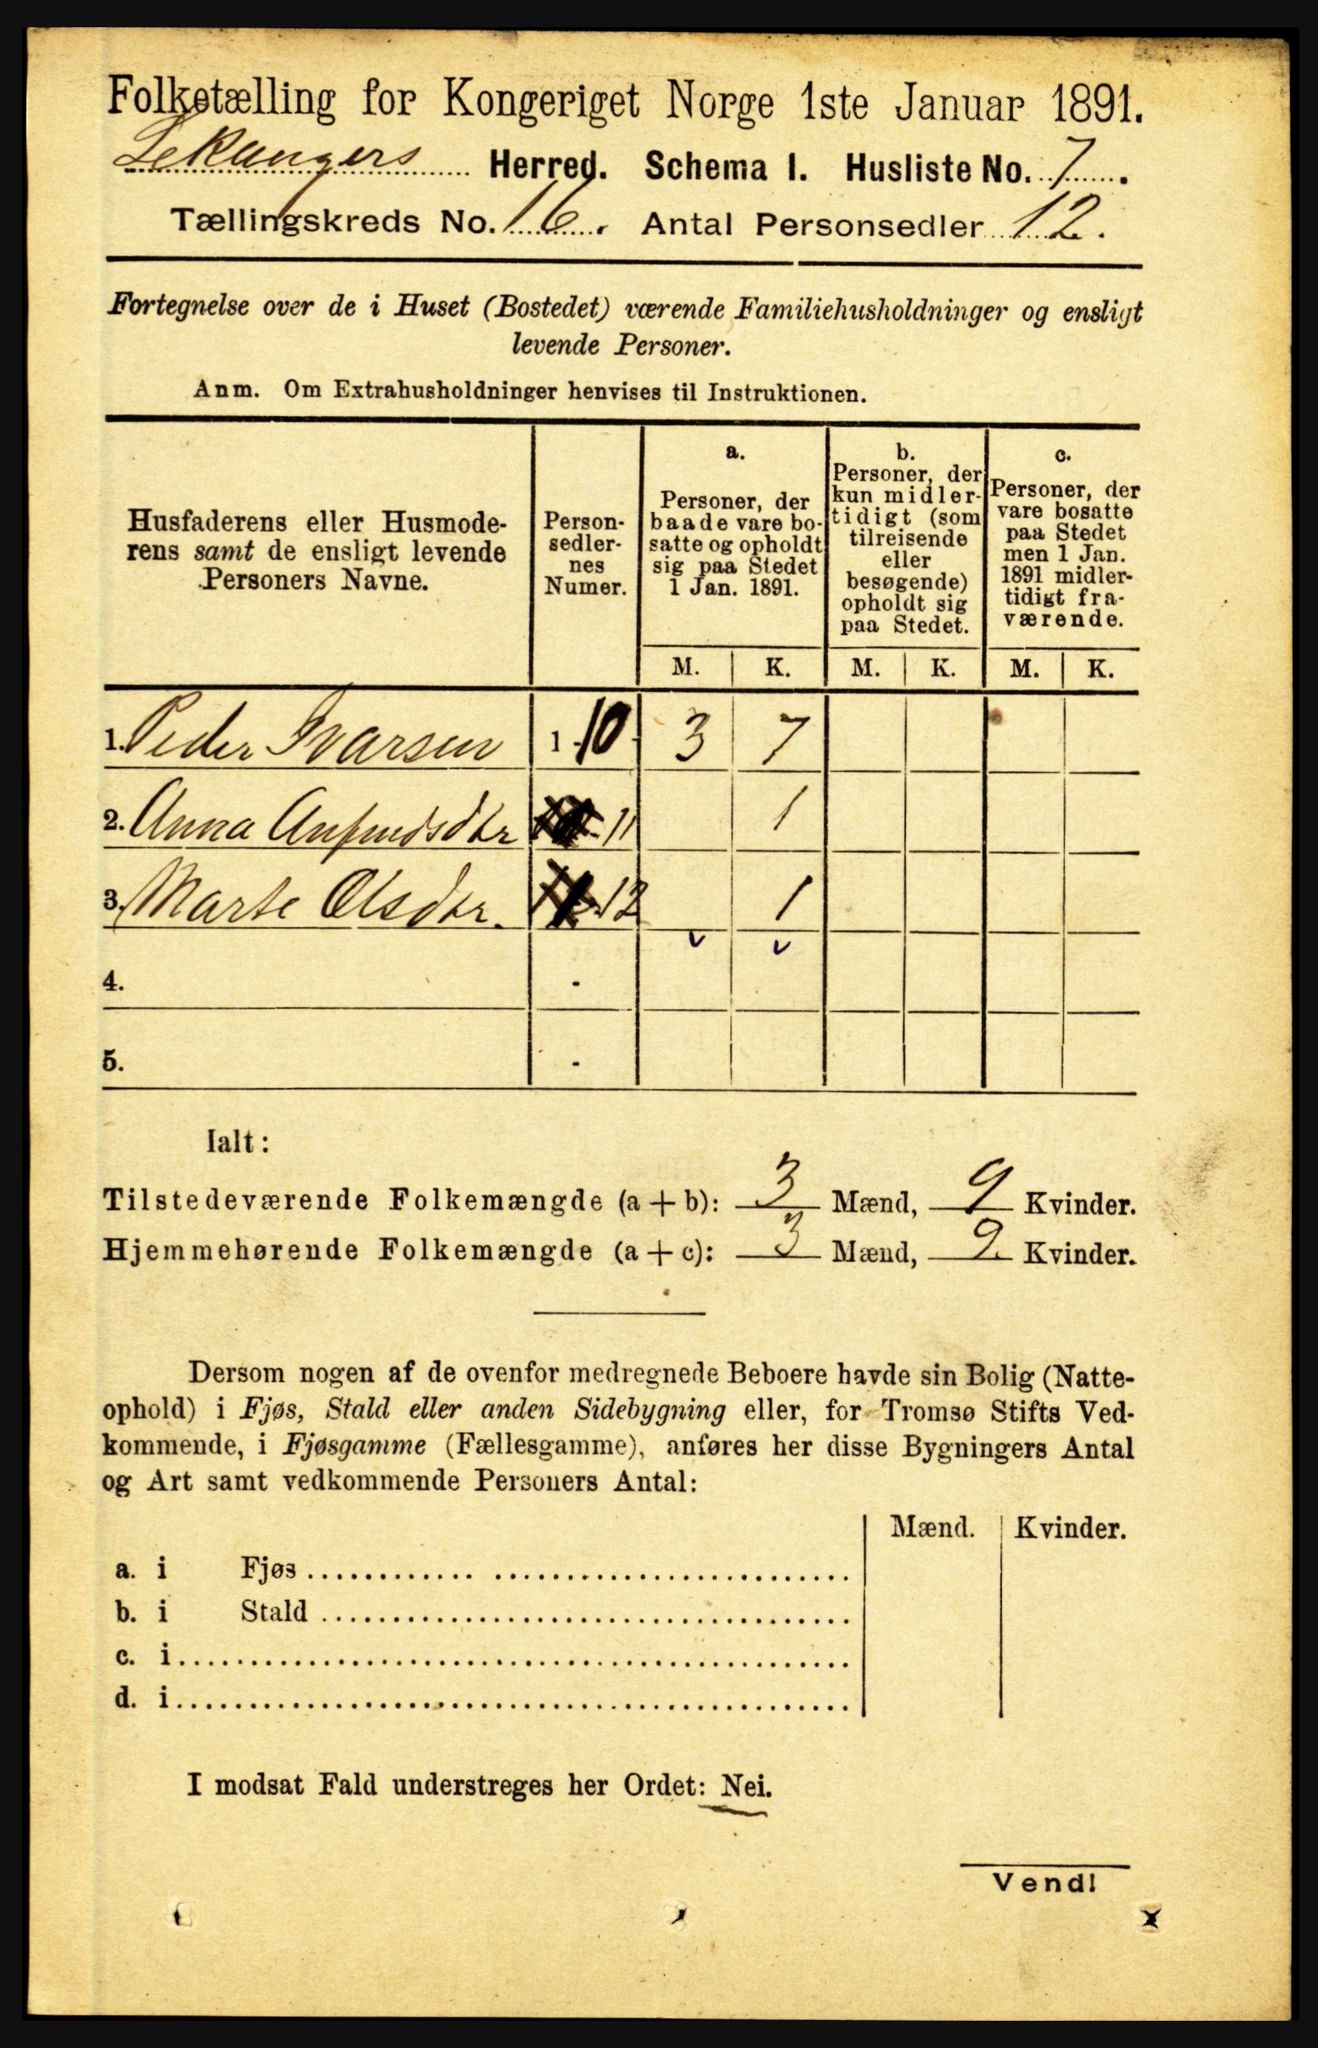 Folketælling for Kongeriget Norge 1ste Januar 1891.
Lekangers Herred. Schema I. Husliste No. 7.
Tællingskreds No. 16. Antal Personsedler 12.
Fortegnelse over de i Huset (Bostedet) værende Familiehusholdninger og ensligt
levende Personer.
Anm. Om Extrahusholdninger henvises til Instruktionen.
Husfaderens eller Husmode-
rens samt de ensligt levende
Personers Navne.
Person-
sedler-
nes
Numer.
a.
Personer, der
baade vare bo-
satte og opholdt
sig paa Stedet
1 Jan. 1891.
b.
Personer, der
kun midler-
tidigt (som
tilreisende
eller
besøgende)
opholdt sig
paa Stedet.
c.
Personer, der
vare bosatte
paa Stedet
men 1 Jan.
1891 midler-
tidigt fra-
værende.
M. K. M. K. M. K.
1. Peder Ivarsen 1 - 10 3 7
2. Anna Anfindsdtr - 11 1
3. Marte Olsdtr. - 12 1
v v
4. -
5. -
Ialt:
Tilstedeværende Folkemængde (a + b): 3 Mænd, 9 Kvinder.
Hjemmehørende Folkemængde (a + c): 3 Mænd, 9 Kvinder.
Dersom nogen af de ovenfor medregnede Beboere havde sin Bolig (Natte-
ophold) i Fjøs, Stald eller anden Sidebygning eller, for Tromsø Stifts Ved-
kommende, i Fjøsgamme (Fællesgamme), anføres her disse Bygningers Antal
og Art samt vedkommende Personers Antal:
Mænd. Kvinder.
a. i Fjøs
b. i Stald
c. i
d. i
I modsat Fald understreges her Ordet: Nei.
Vend!